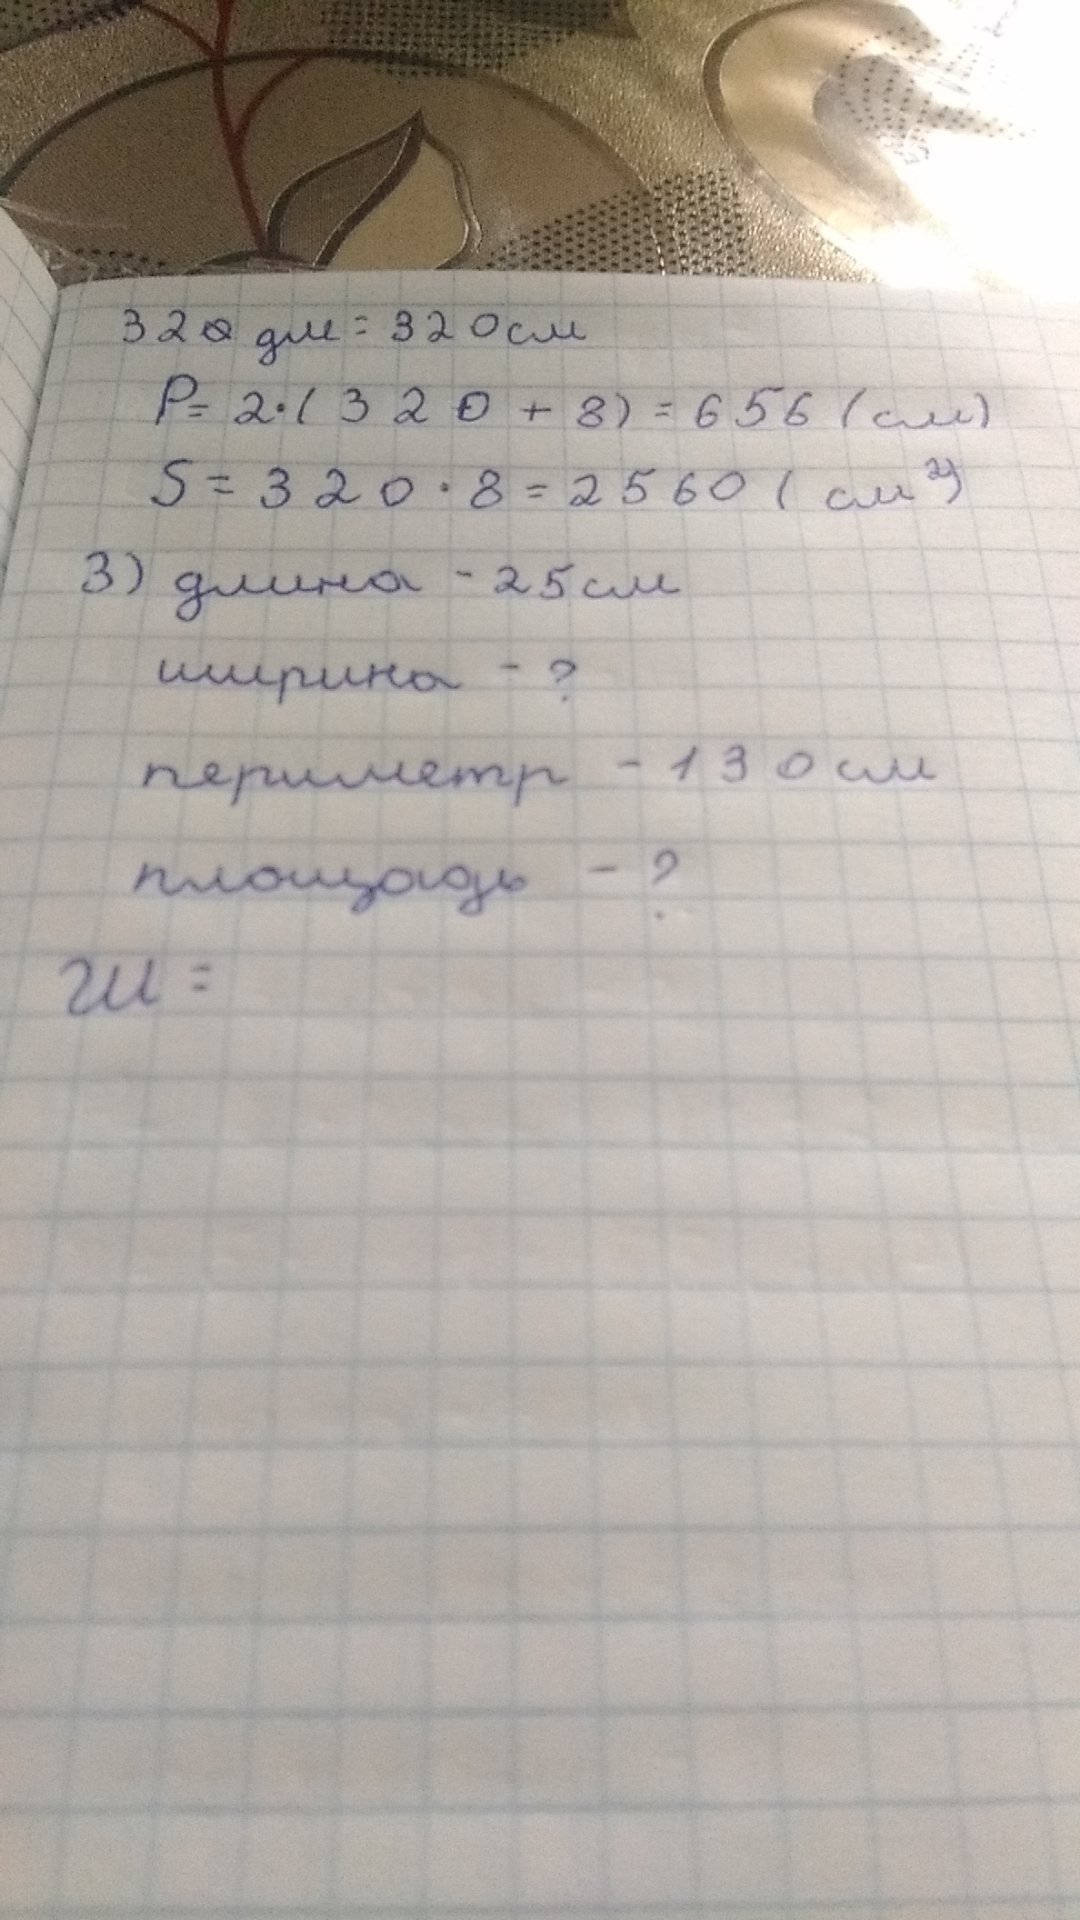 320 дм = 320 см
P = 2·(320 + 8) = 656 (см)
S = 320 · 8 = 2560 (см²)
3) длина - 25 см
ширина - ?
периметр - 130 см
площадь - ?